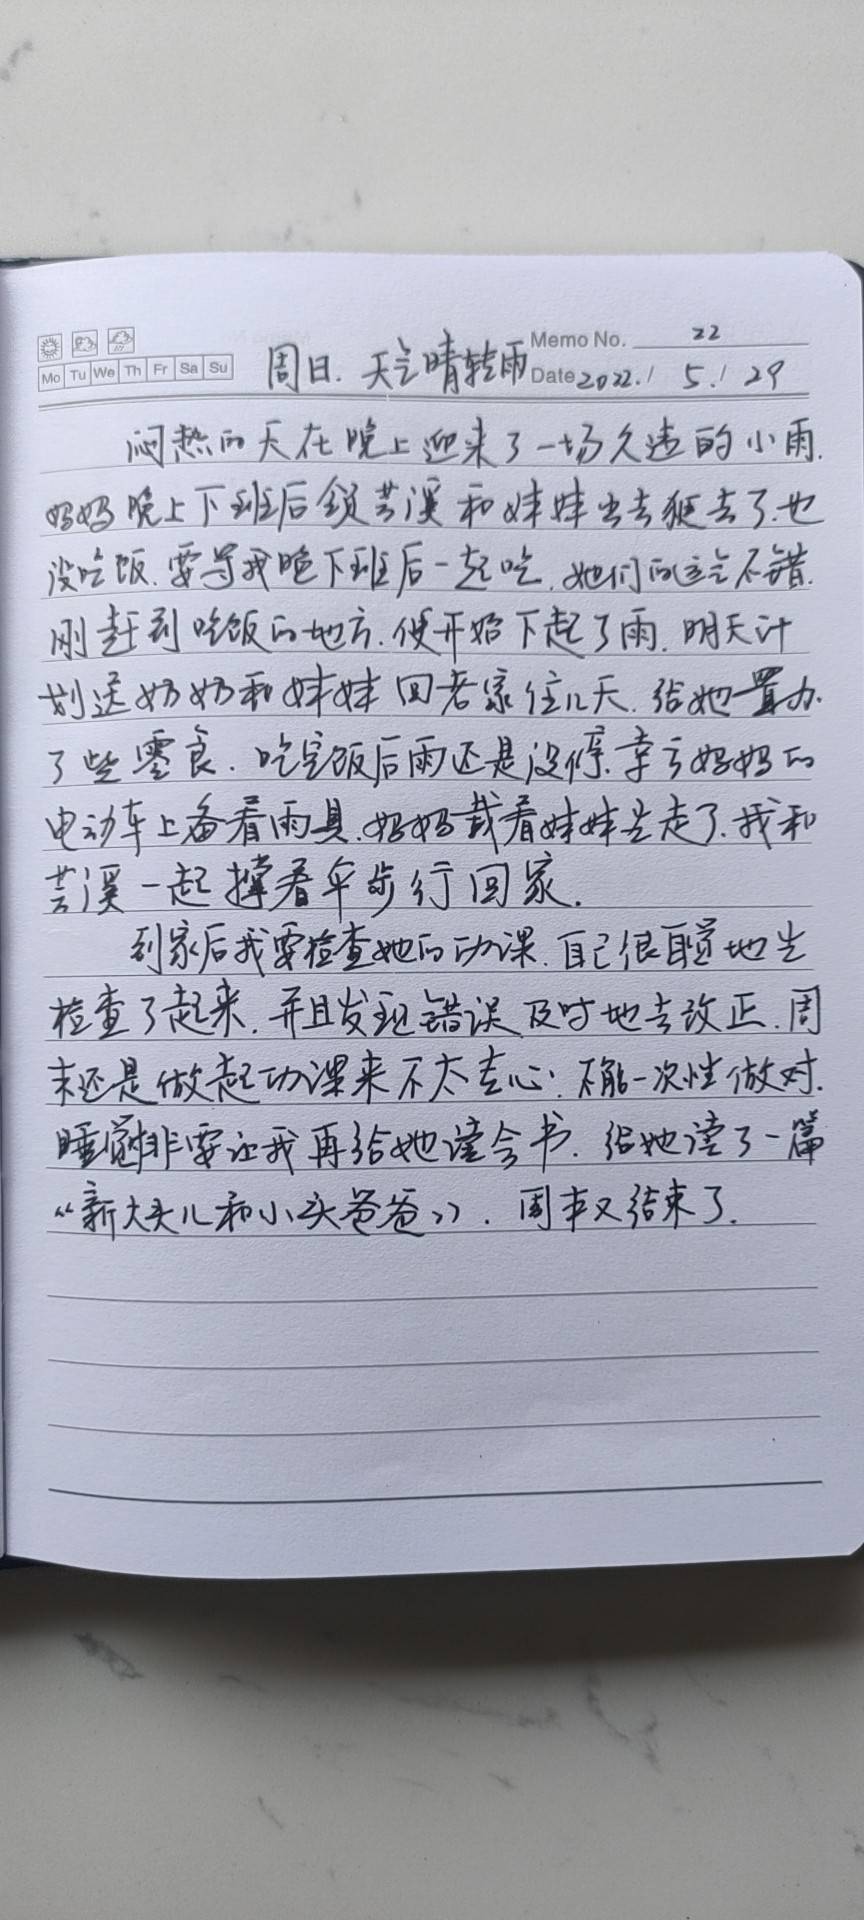 Memo No. 22
Mo Tu We Th Fr Sa Su 周日.天气晴转雨 Date 2022./ 5./ 29
闷热的天在晚上迎来了一场久违的小雨.
妈妈晚上下班后领芸溪和妹妹出去逛去了.也
没吃饭.要等我晚下班后一起吃.她们的运气不错.
刚赶到吃饭的地方.便开始下起了雨.明天计
划送奶奶和妹妹回老家住几天.给她置办
了些零食.吃完饭后雨还是没停.幸亏妈妈的
电动车上备着雨具.妈妈载着妹妹先走了.我和
芸溪一起撑着伞步行回家.
到家后我要检查她的功课.自己很自觉地先
检查了起来.并且发现错误及时地去改正.周
末还是做起功课来不太专心;不能一次性做对.
睡觉时非要让我再给她读会书.给她读了一篇
《新大头儿和小头爸爸》.周末又结束了.